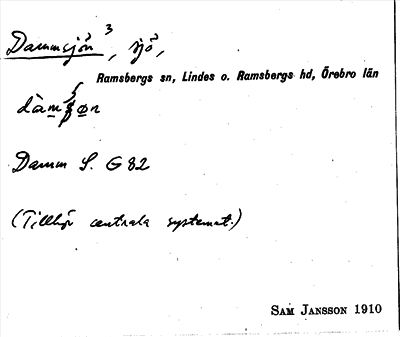 Dammsjön 3, sjö,
Ramsbergs sn, Lindes o. Ramsbergs hd, Örebro län
Damm S. G 82
(Tillhör centrala systemet.)
SAM JANSSON 1910